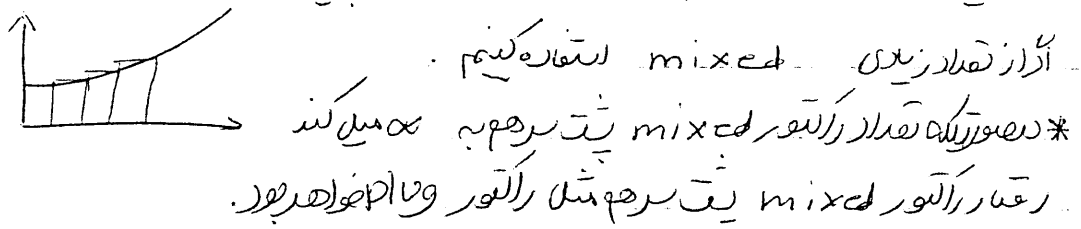 اگر از تعداد زیادی mixed استفاده کنیم.
* درصورتیکه تعداد راکتور mixed پشت سر هم به ∞ میل کند
رفتار راکتور mixed پشت سر هم مثل راکتور plug خواهد بود.